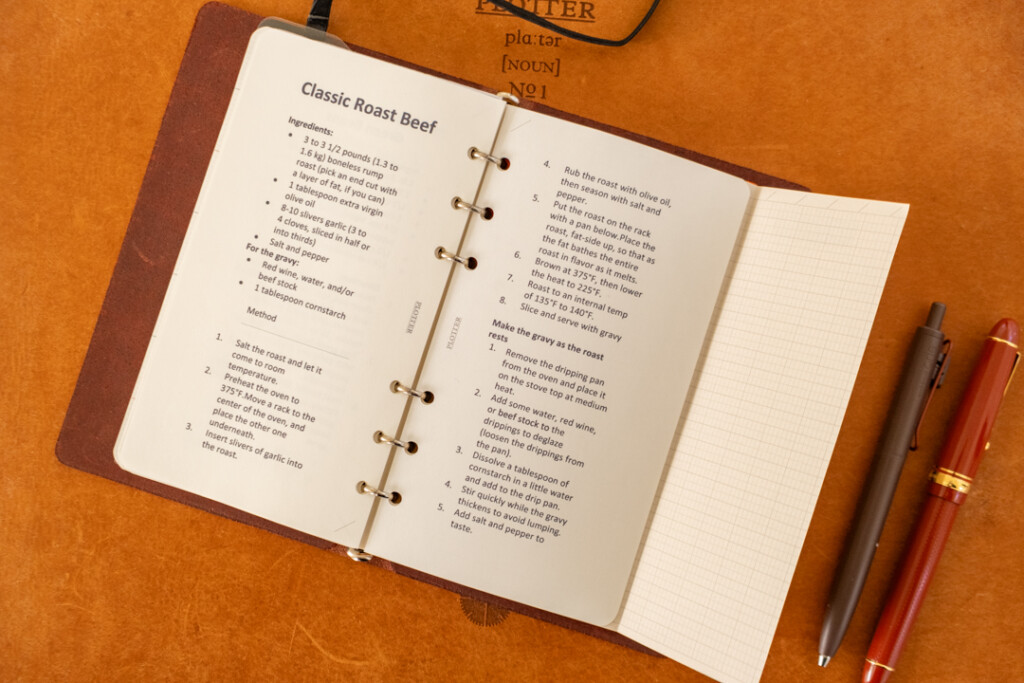 PLOTTER
plɑ:tər
[NOUN]
Nº 1
Classic Roast Beef
Ingredients:
• 3 to 3 1/2 pounds (1.3 to
1.6 kg) boneless rump
roast (pick an end cut with
a layer of fat, if you can)
• 1 tablespoon extra virgin
olive oil
• 8-10 slivers garlic (3 to
4 cloves, sliced in half or
into thirds)
• Salt and pepper
For the gravy:
• Red wine, water, and/or
beef stock
• 1 tablespoon cornstarch
Method
1. Salt the roast and let it
come to room
temperature.
2. Preheat the oven to
375°F.Move a rack to the
center of the oven, and
place the other one
underneath.
3. Insert slivers of garlic into
the roast.
PLOTTER
PLOTTER
4. Rub the roast with olive oil,
then season with salt and
pepper.
5. Put the roast on the rack
with a pan below.Place the
roast, fat-side up, so that as
the fat bathes the entire
roast in flavor as it melts.
6. Brown at 375°F, then lower
the heat to 225°F.
7. Roast to an internal temp
of 135°F to 140°F.
8. Slice and serve with gravy
Make the gravy as the roast
rests
1. Remove the dripping pan
from the oven and place it
on the stove top at medium
heat.
2. Add some water, red wine,
or beef stock to the
drippings to deglaze
(loosen the drippings from
the pan).
3. Dissolve a tablespoon of
cornstarch in a little water
and add to the drip pan.
4. Stir quickly while the gravy
thickens to avoid lumping.
5. Add salt and pepper to
taste.